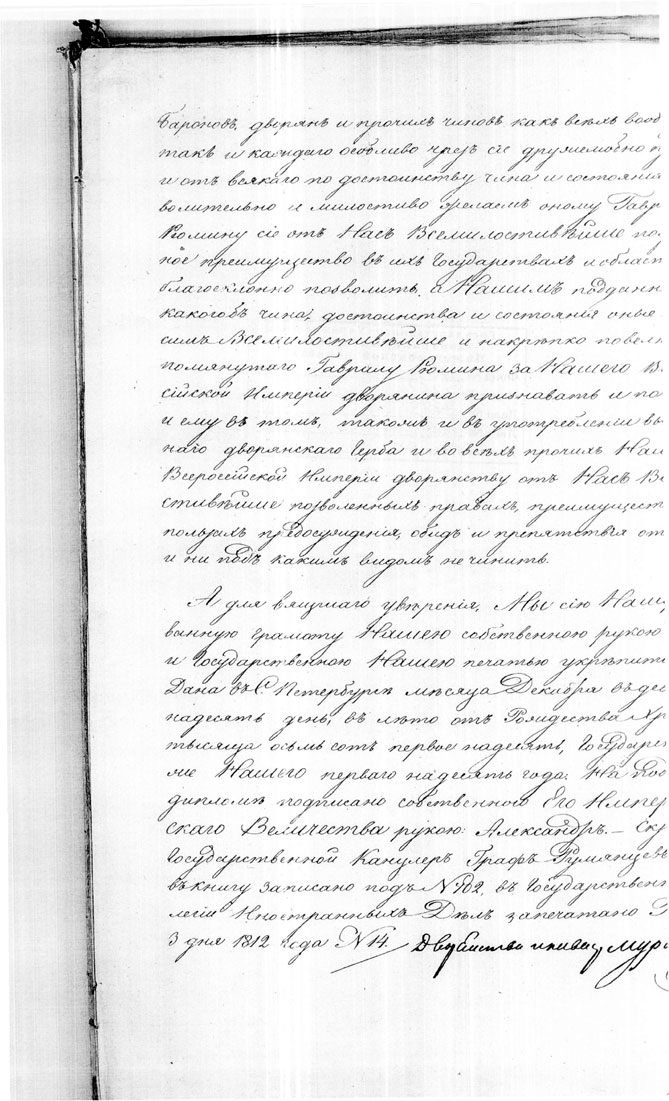 Бароновъ, дворянъ и прочихъ чиновъ какъ всѣхъ вооб
такъ и каждаго особливо чрезъ сіе дружелюбно
и отъ всякаго по достоинству чина и состоянія
волительно и милостиво желаемъ оному Гавр
Рюмину сіе отъ Насъ Всемилостивѣйше по
ное преимущество въ ихъ Государствахъ и област
благосклонно позволить, а Нашимъ поддан
какогобъ чина, достоинства и состоянія оные
симъ Всемилостивѣйше и накрѣпко повел
помянутаго Гаврилу Рюмина за Нашего В
сійской Имперіи дворянина признавать и по
и ему въ томъ, такожъ и въ употребленіи вы
наго дворянскаго Герба и во всѣхъ прочихъ На
Всеросійской Имперіи дворянству отъ Насъ В
стивѣйше позволенныхъ правахъ, преимущест
пользахъ предосужденія, обидъ и препятствія от
и ни подъ какимъ видомъ не чинить.
А для вящшаго увѣренія, Мы сію Наш
ванную грамоту Нашею собственною рукою
и Государственною Нашею печатью укрѣпит
Дана въ С. Петербургѣ мѣсяца Декабря въ де
надесять день, въ лѣто отъ Рождества Хр
тысяща осьмь сотъ первое надесять, Государст
же Нашего перваго надесять года. На под
дипломѣ подписано собственною Его Импер
скаго Величества рукою: Александръ.—
Государственной Канцлеръ Графъ Румянцевъ
въ книгу записано подъ № 702. въ Государствен
легіи Иностранныхъ Дѣлъ запечатано
3 дня 1812 года № 14.